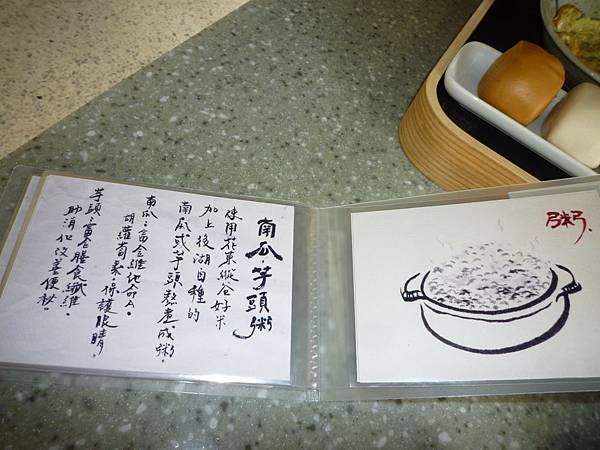 南瓜.芋頭粥
使用花東縱谷好米
加上後湖自種的
南瓜或芋頭熬煮成粥.
南瓜:富含維他命A.
胡蘿蔔素.保護眼睛.
芋頭:富含膳食纖維.
助消化改善便秘.
粥.